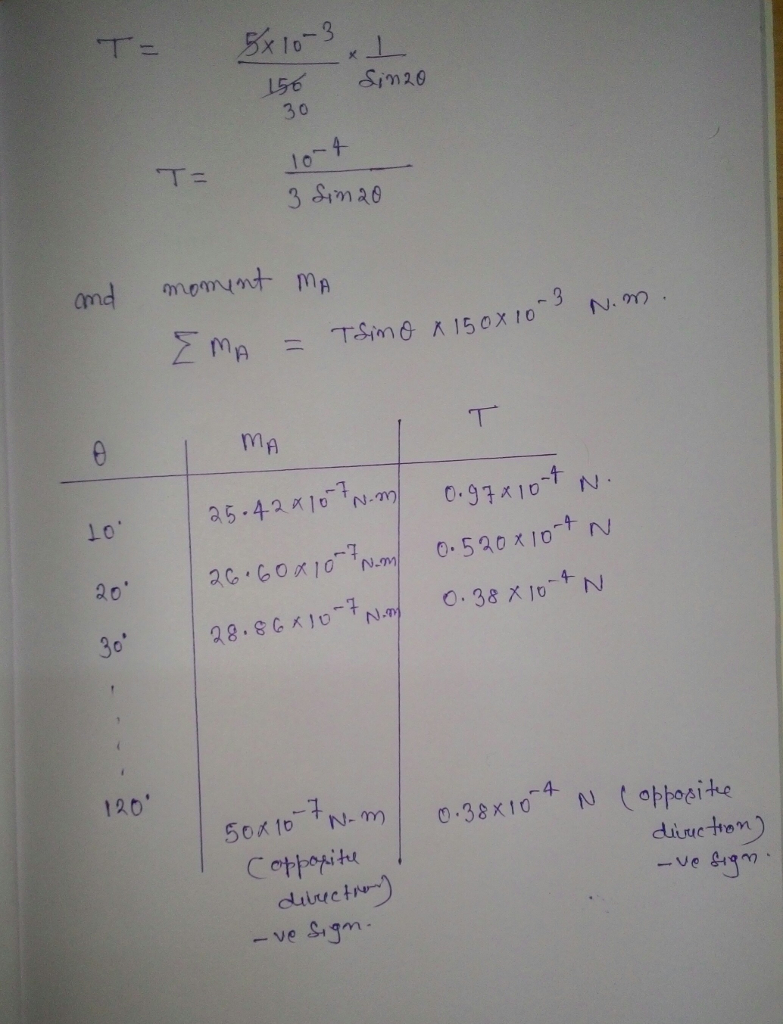 T = 5x10-3 / 150 x 1 / Sin2θ
30
T = 10-4 / 3 Sin2θ
and moment MA
Σ MA = TSinθ x 150x10-3 N.m.
θ MA T
10° 25.42x10-7 N-m 0.97x10-4 N.
20° 26.60x10-7 N.m 0.520x10-4 N
30° 28.86x10-7 N.m 0.38x10-4 N
120° 50x10-7 N-m (opposite direction) -ve sign. 0.38x10-4 N (opposite direction) -ve sign.